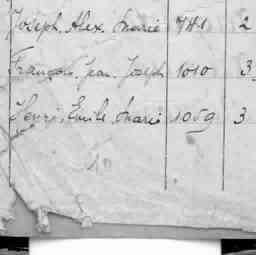 Joseph, Alex. Marie 741 2
François, Jean, Joseph 1010 3
Henri, Emile, Marie 1059 3